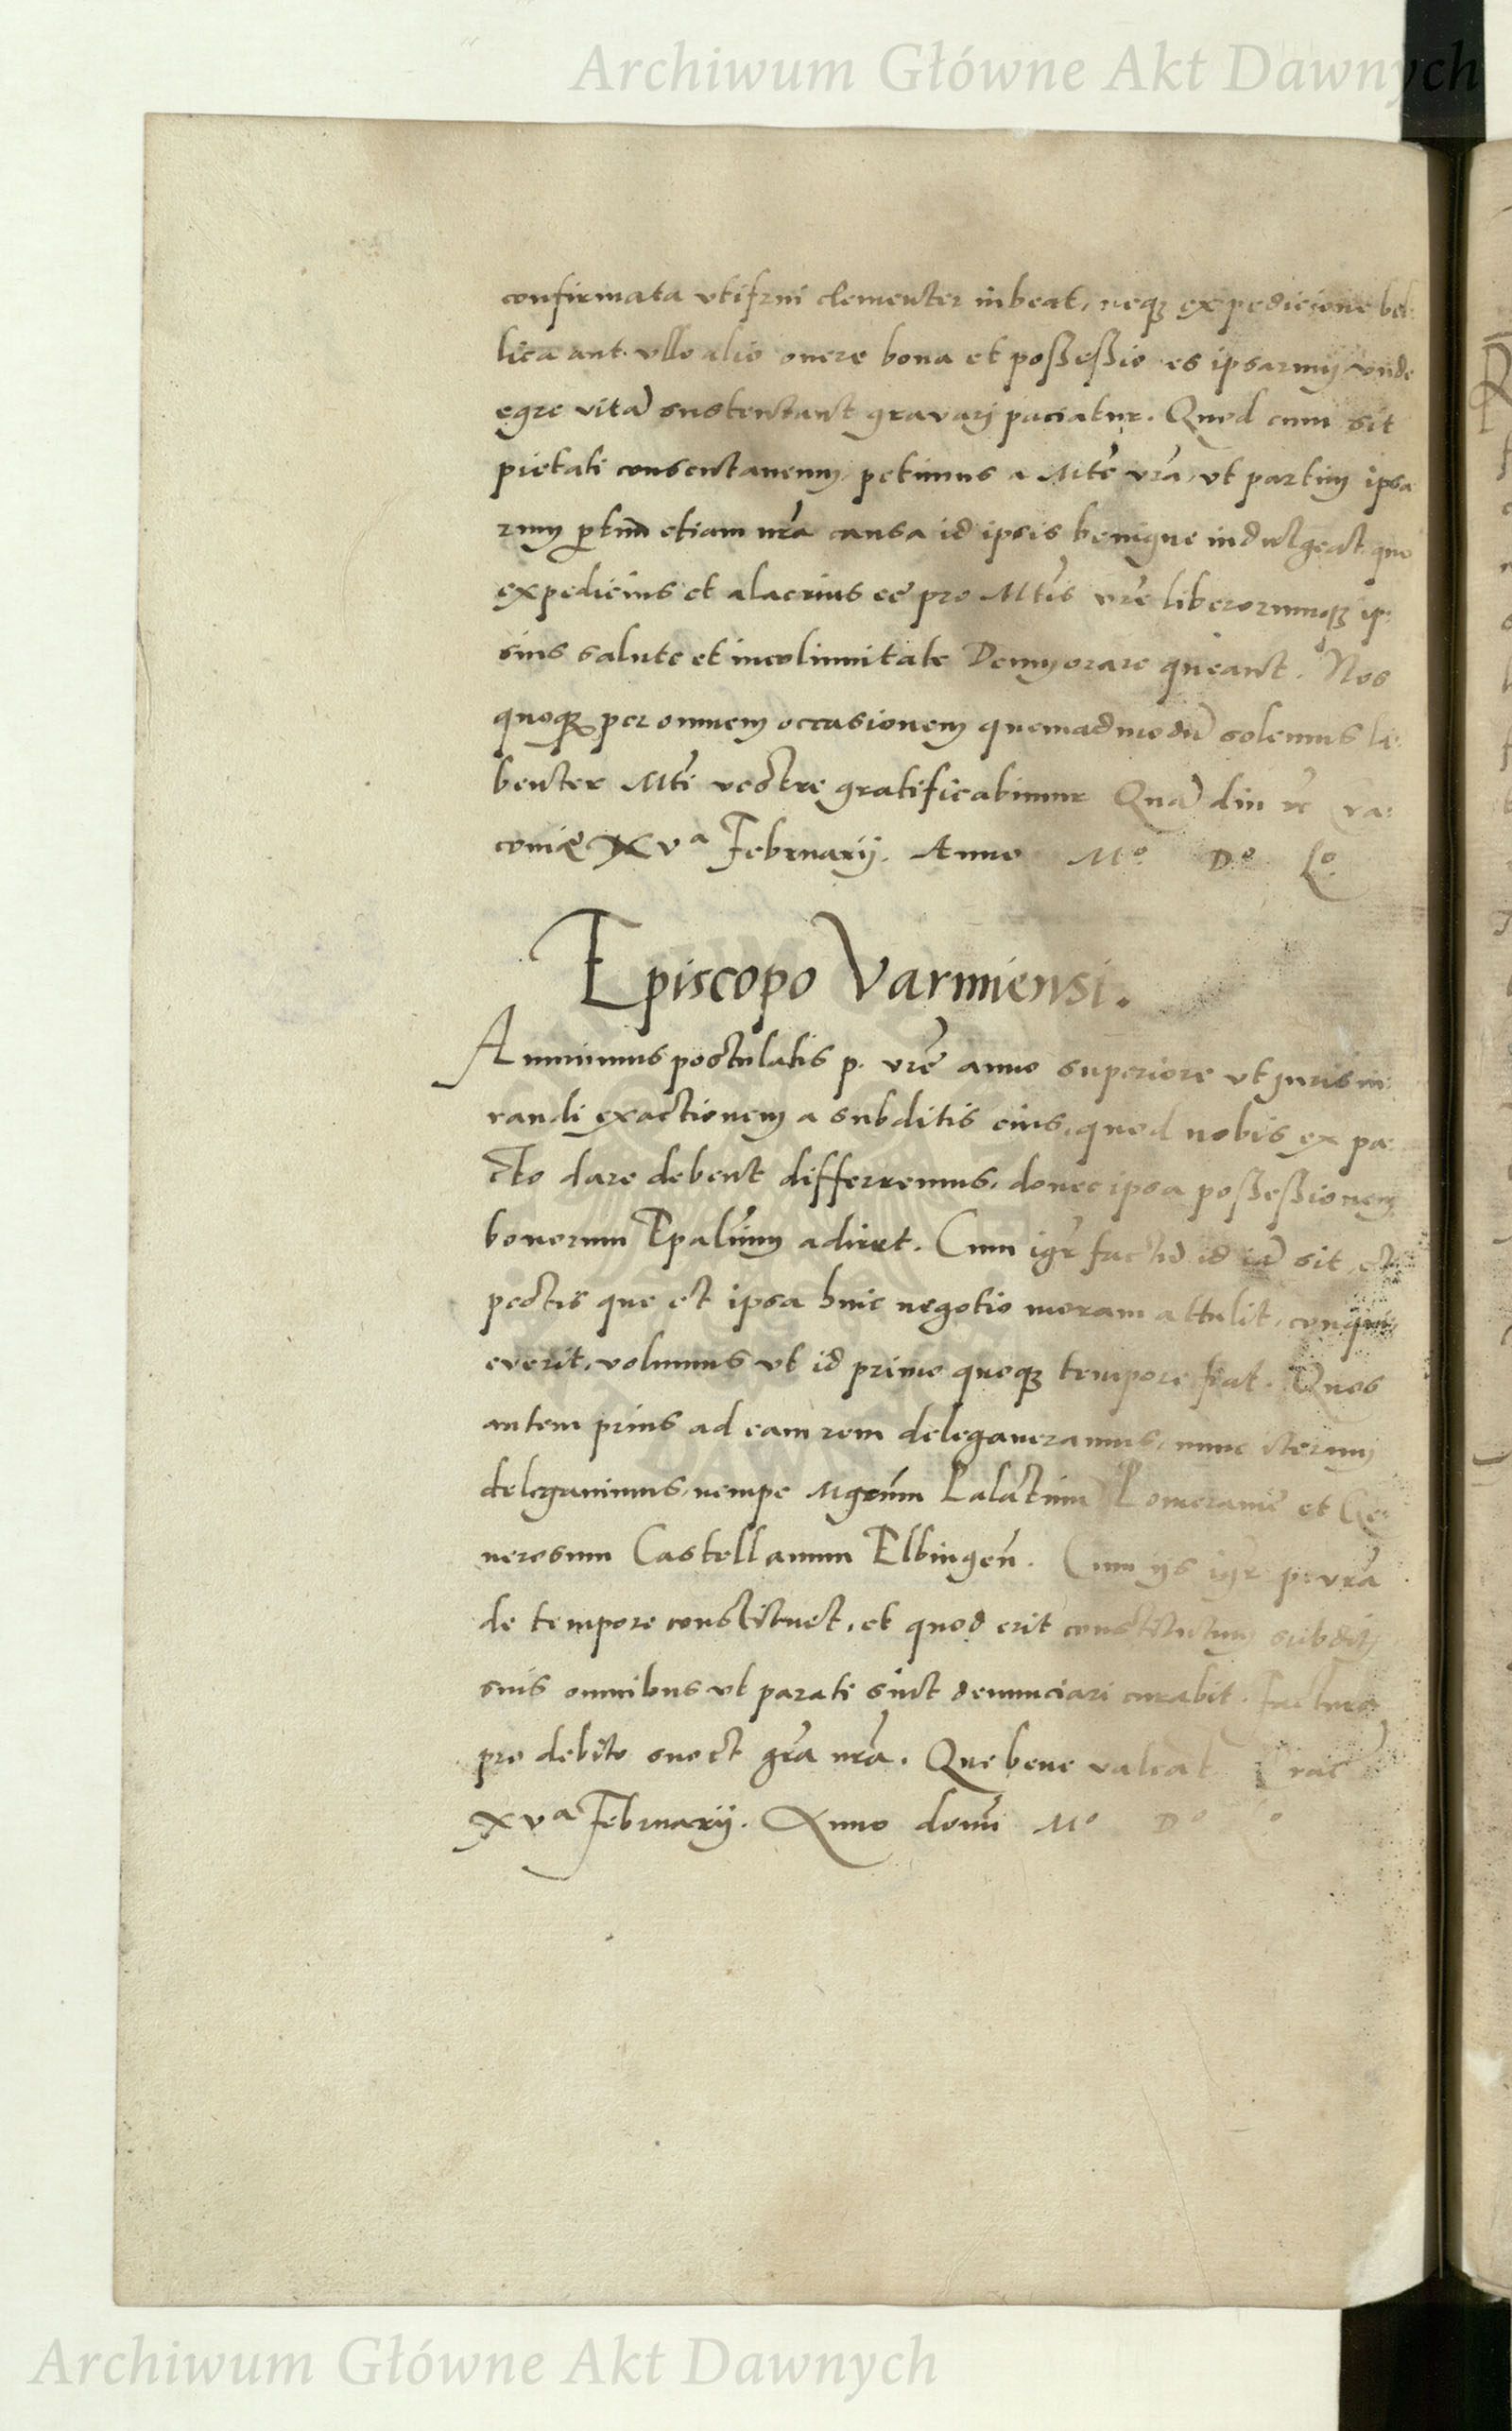 Archiwum Główne Akt Dawnych
confirmata vtifrui clementer iubeat, neqꝫ expedicione bel:
lica aut vllo alio onere bona et possessio es ipsarum vnde
egre vitā sustentant gravari paciatur. Quod cum sit
pietati consentaneum, petimus a Mte vrā, vt partim ipsa
rum ptim etiam nrā causa id ipsis benigne indulgeat quo
expedicius et alacrius ee pro Mtis vrē liberorumqꝫ ip:
sius salute et incolimitate Deum orare queant. Nos
quoqꝫ per omnem occasionem quemadmodū solemus li:
benter Mti vestre gratificabimur Quā diu rc Cra:
coviæ XVa Februarij. Anno Mo. Do. Lo.
Episcopo Varmiensi.
Annuimus postulatis p. vrē anno superiore vt jurisiu:
randi exactionem a subditis eius, quod nobis ex pa:
cto dare debent differremus, donec ipsa possessionem
bonorum Epalium adiret. Cum igr factū id iā sit, et
pestis que et ipsa huic negotio moram attulit, conqui:
everit, volumus vt id primo quoqꝫ tempore fiat. Quos
autem prius ad eam rem delegaueramus, nunc iterum
delegauimus, nempe Mgcum Palatinū Pomeranie et Ge:
nerosum Castellanum Elbingen. Cum ijs igr p. vrā
de tempore constituet, et quod erit constitutum subdit
suis omnibus vt parati sint denunciari curabit. factura
pro debito suo et grā nrā. Que bene valeat Crac
XVa Februarij. Anno domi Mo Do Lo
Archiwum Główne Akt Dawnych